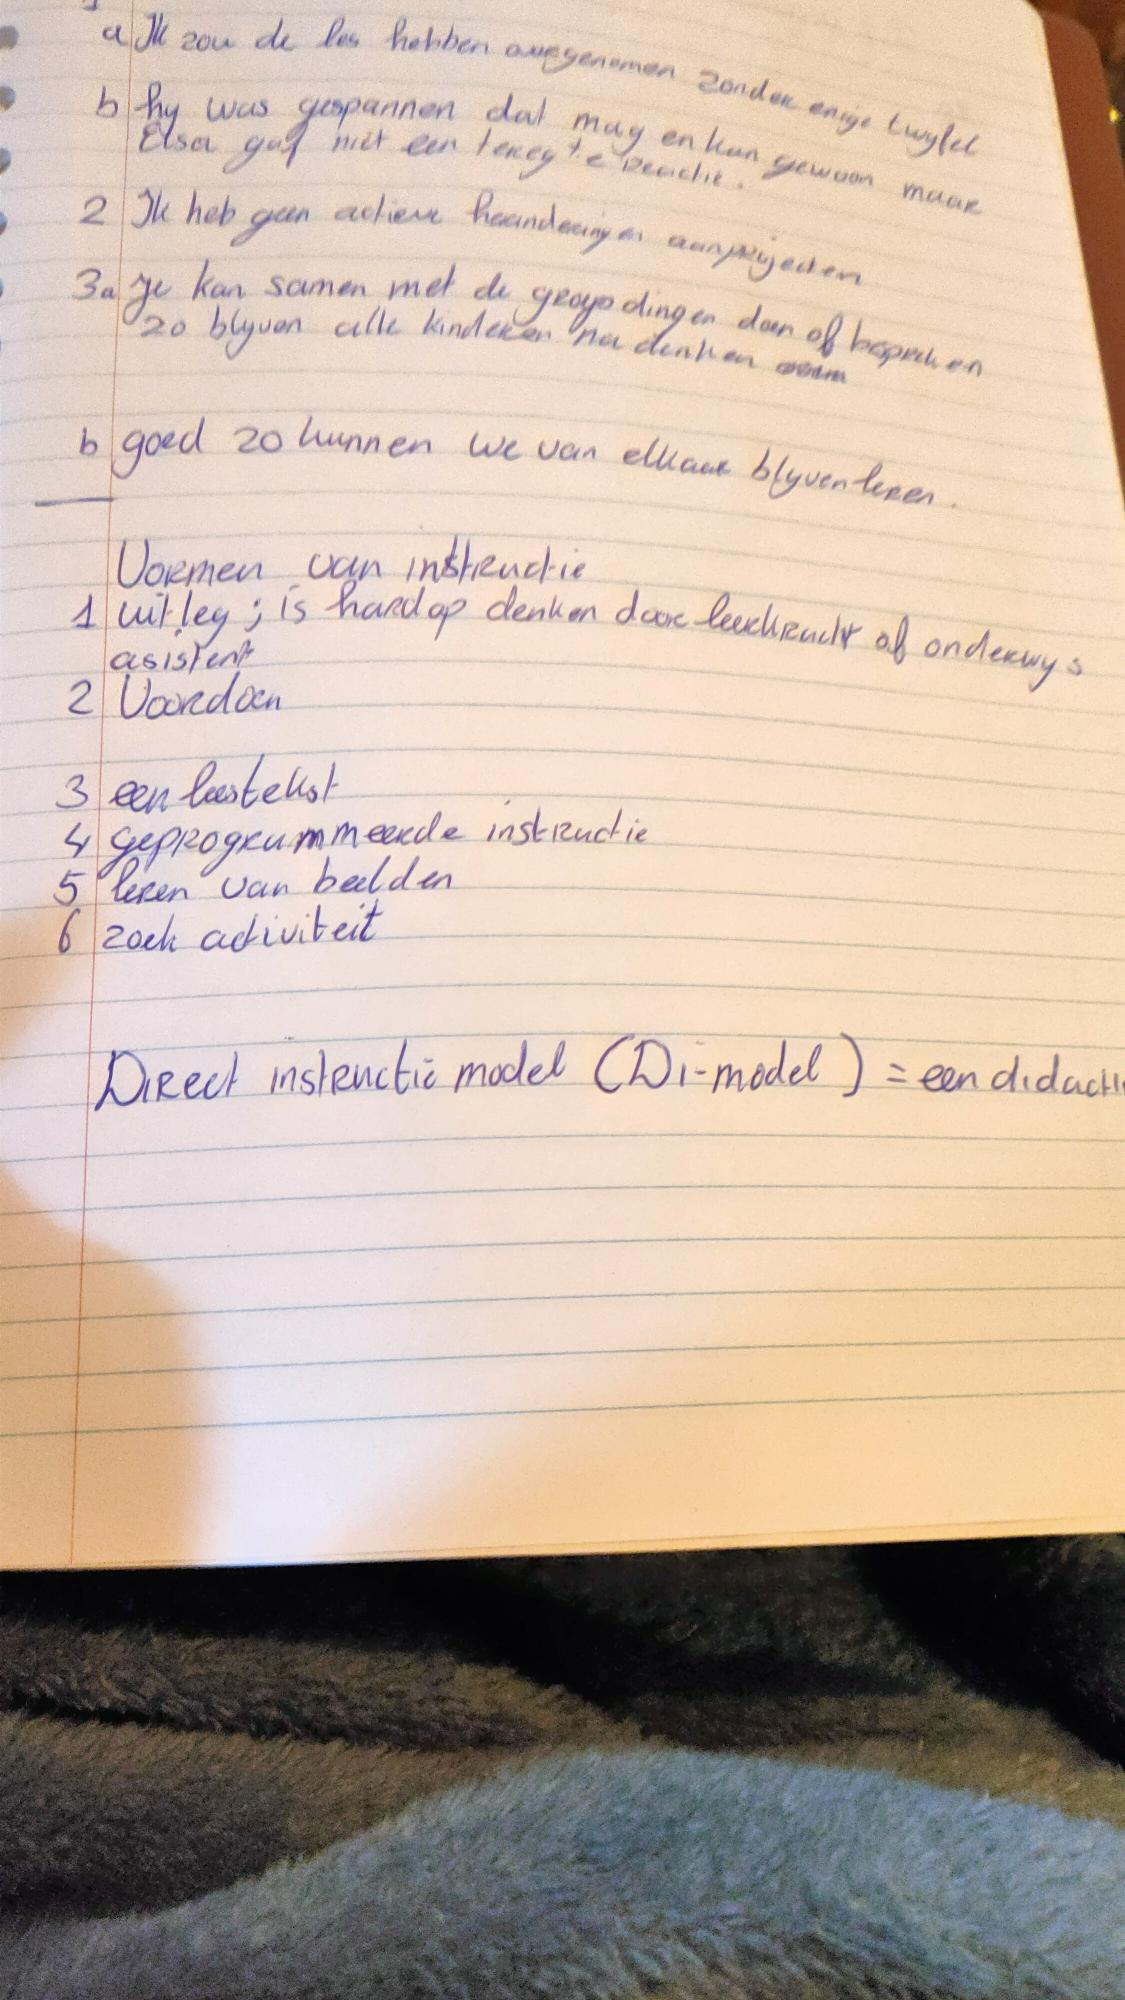 a Ik zou de les hebben overgenomen zonder enige twyfel
b hy was gespannen dat mag en kan gewoon maar
Elsa gaf niet een terechte reactie.
2 Ik heb geen actieve
3a Je kan samen met de groep dingen doen of bespreken
zo blyven alle kinderen na denken
b goed zo kunnen we van elkaar blyven leren.
Vormen van instructie
1 uitleg ; is hardop denken door leerkracht of onderwys
asistent
2 Voordoen
3 een leestekst
4 geprogrammeerde instructie
5 leren van beelden
6 zoek activiteit
Direct instructie model (Di-model) = een didacti